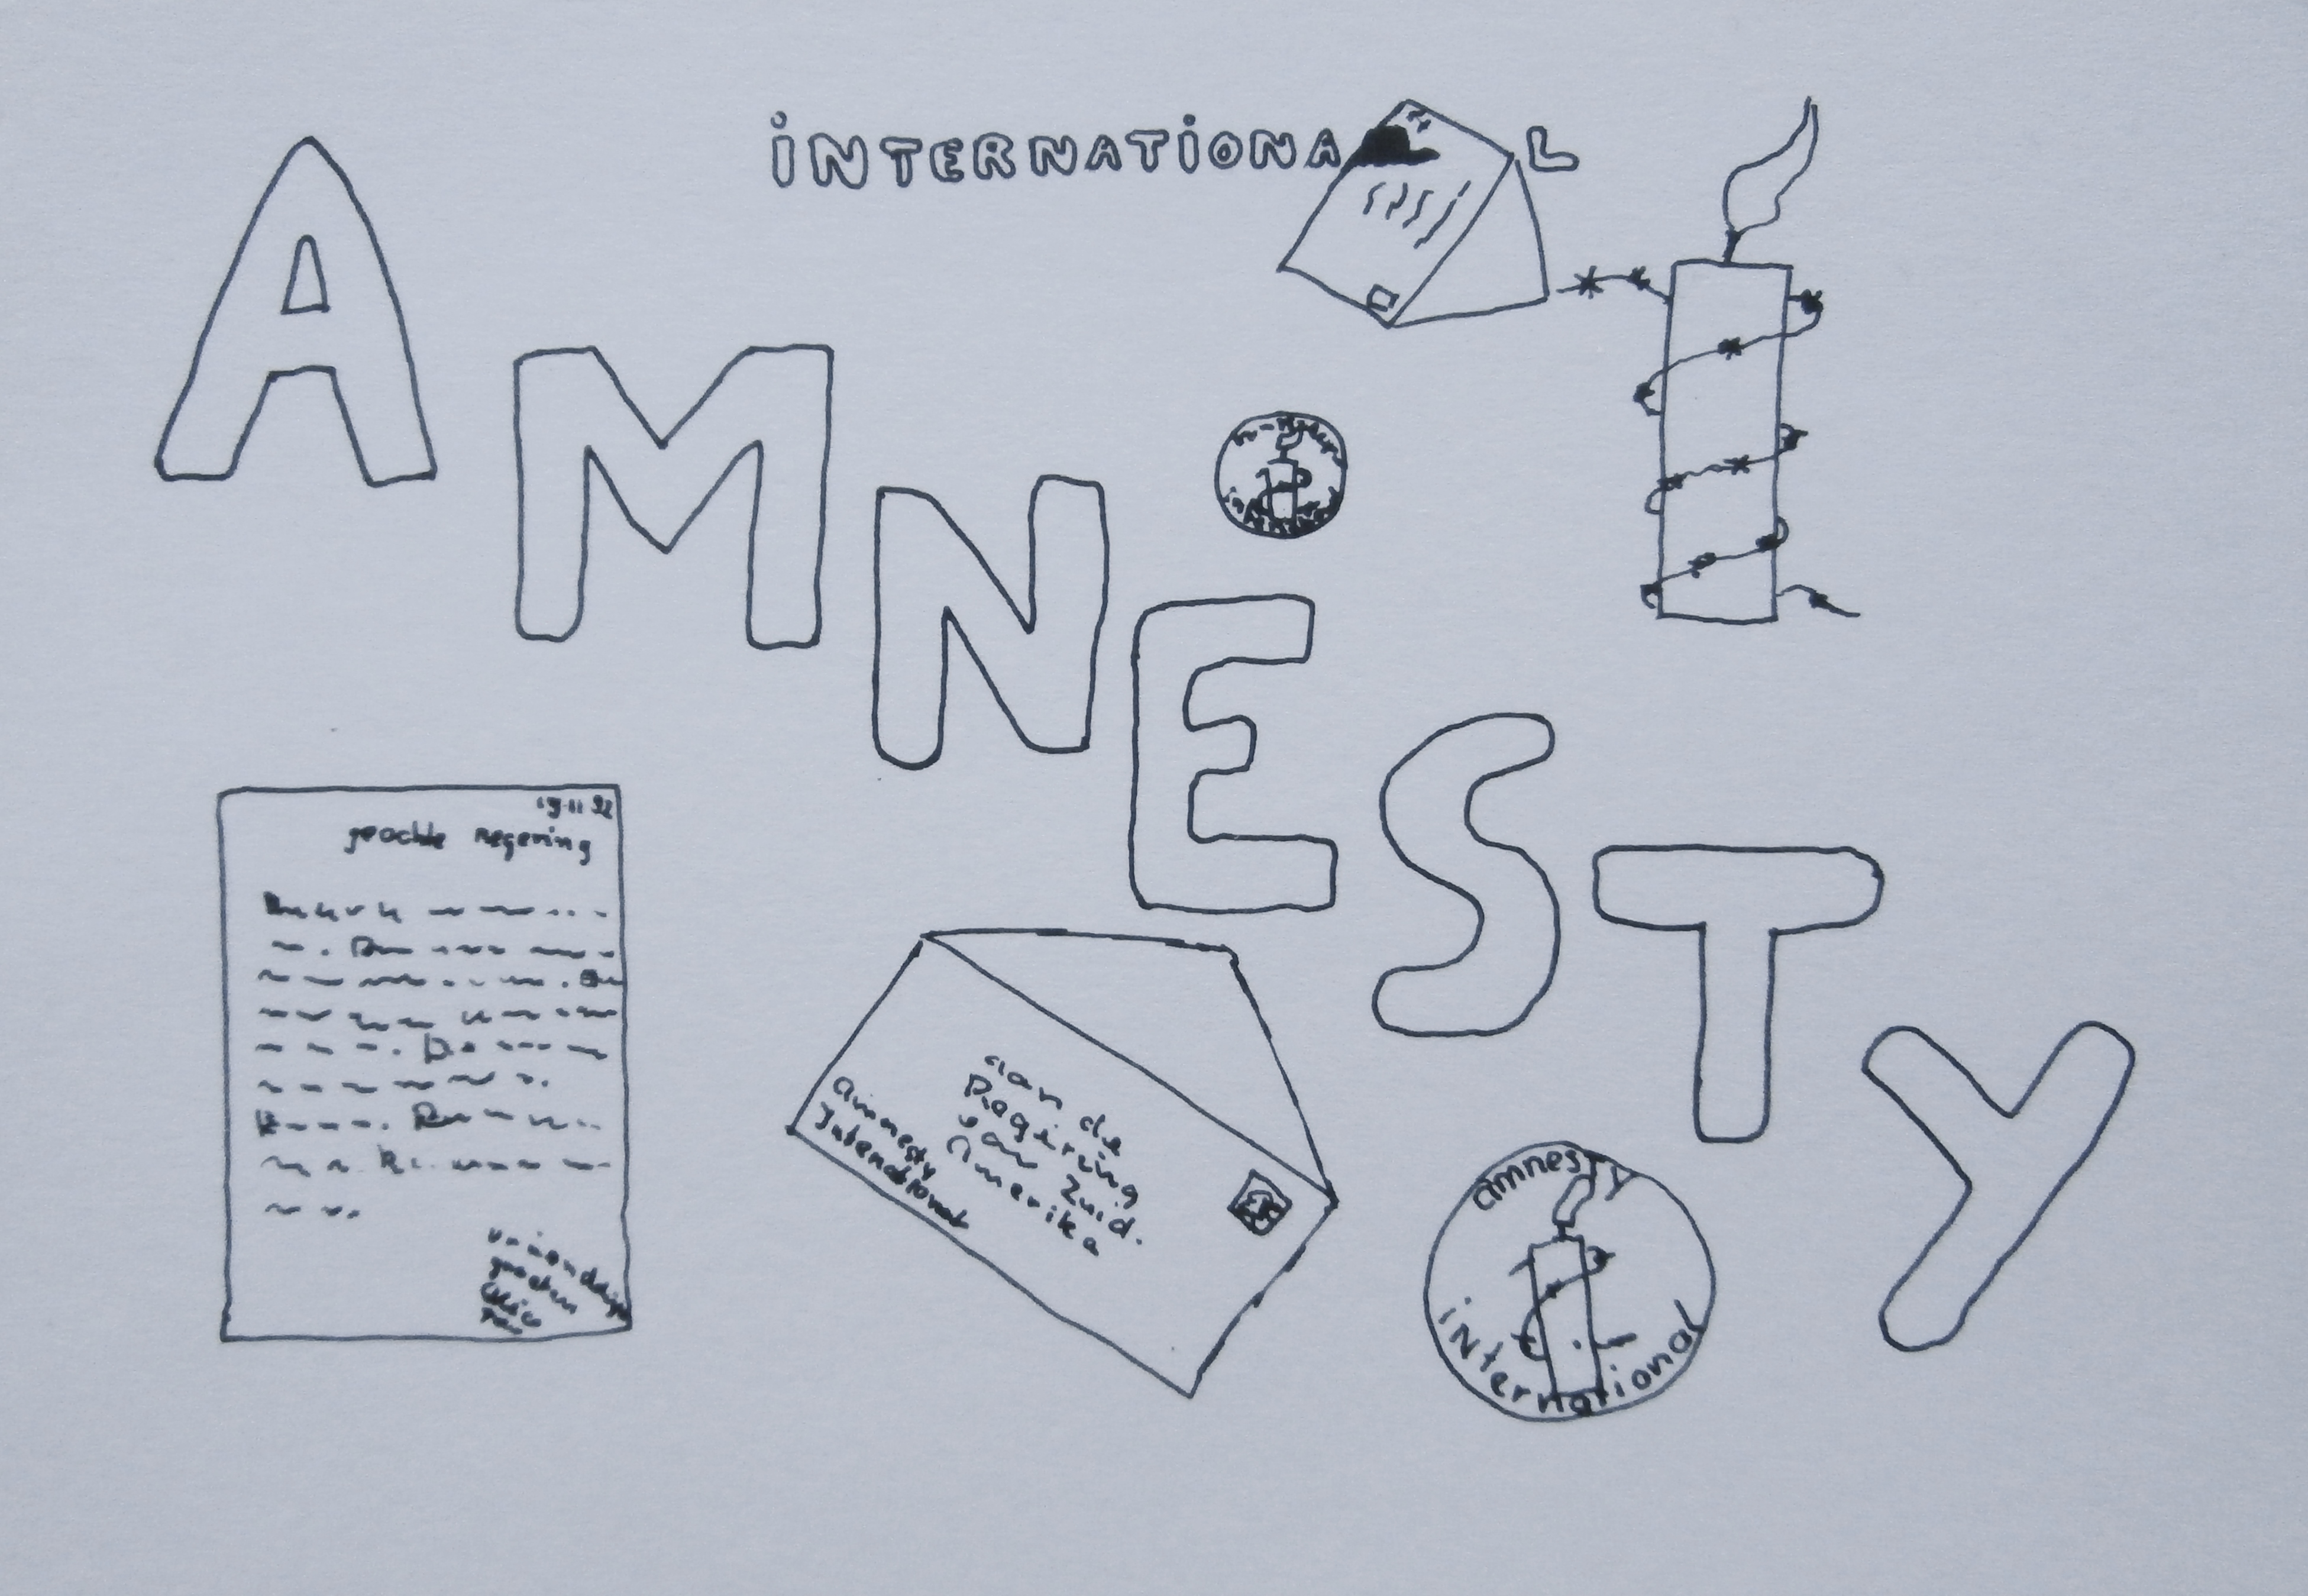 INTERNATIONAL
AMNESTY
19.11.92
geachte regering
aan de
Regering
van Zuid.
Amerika
amnesty
International
amnesty
international